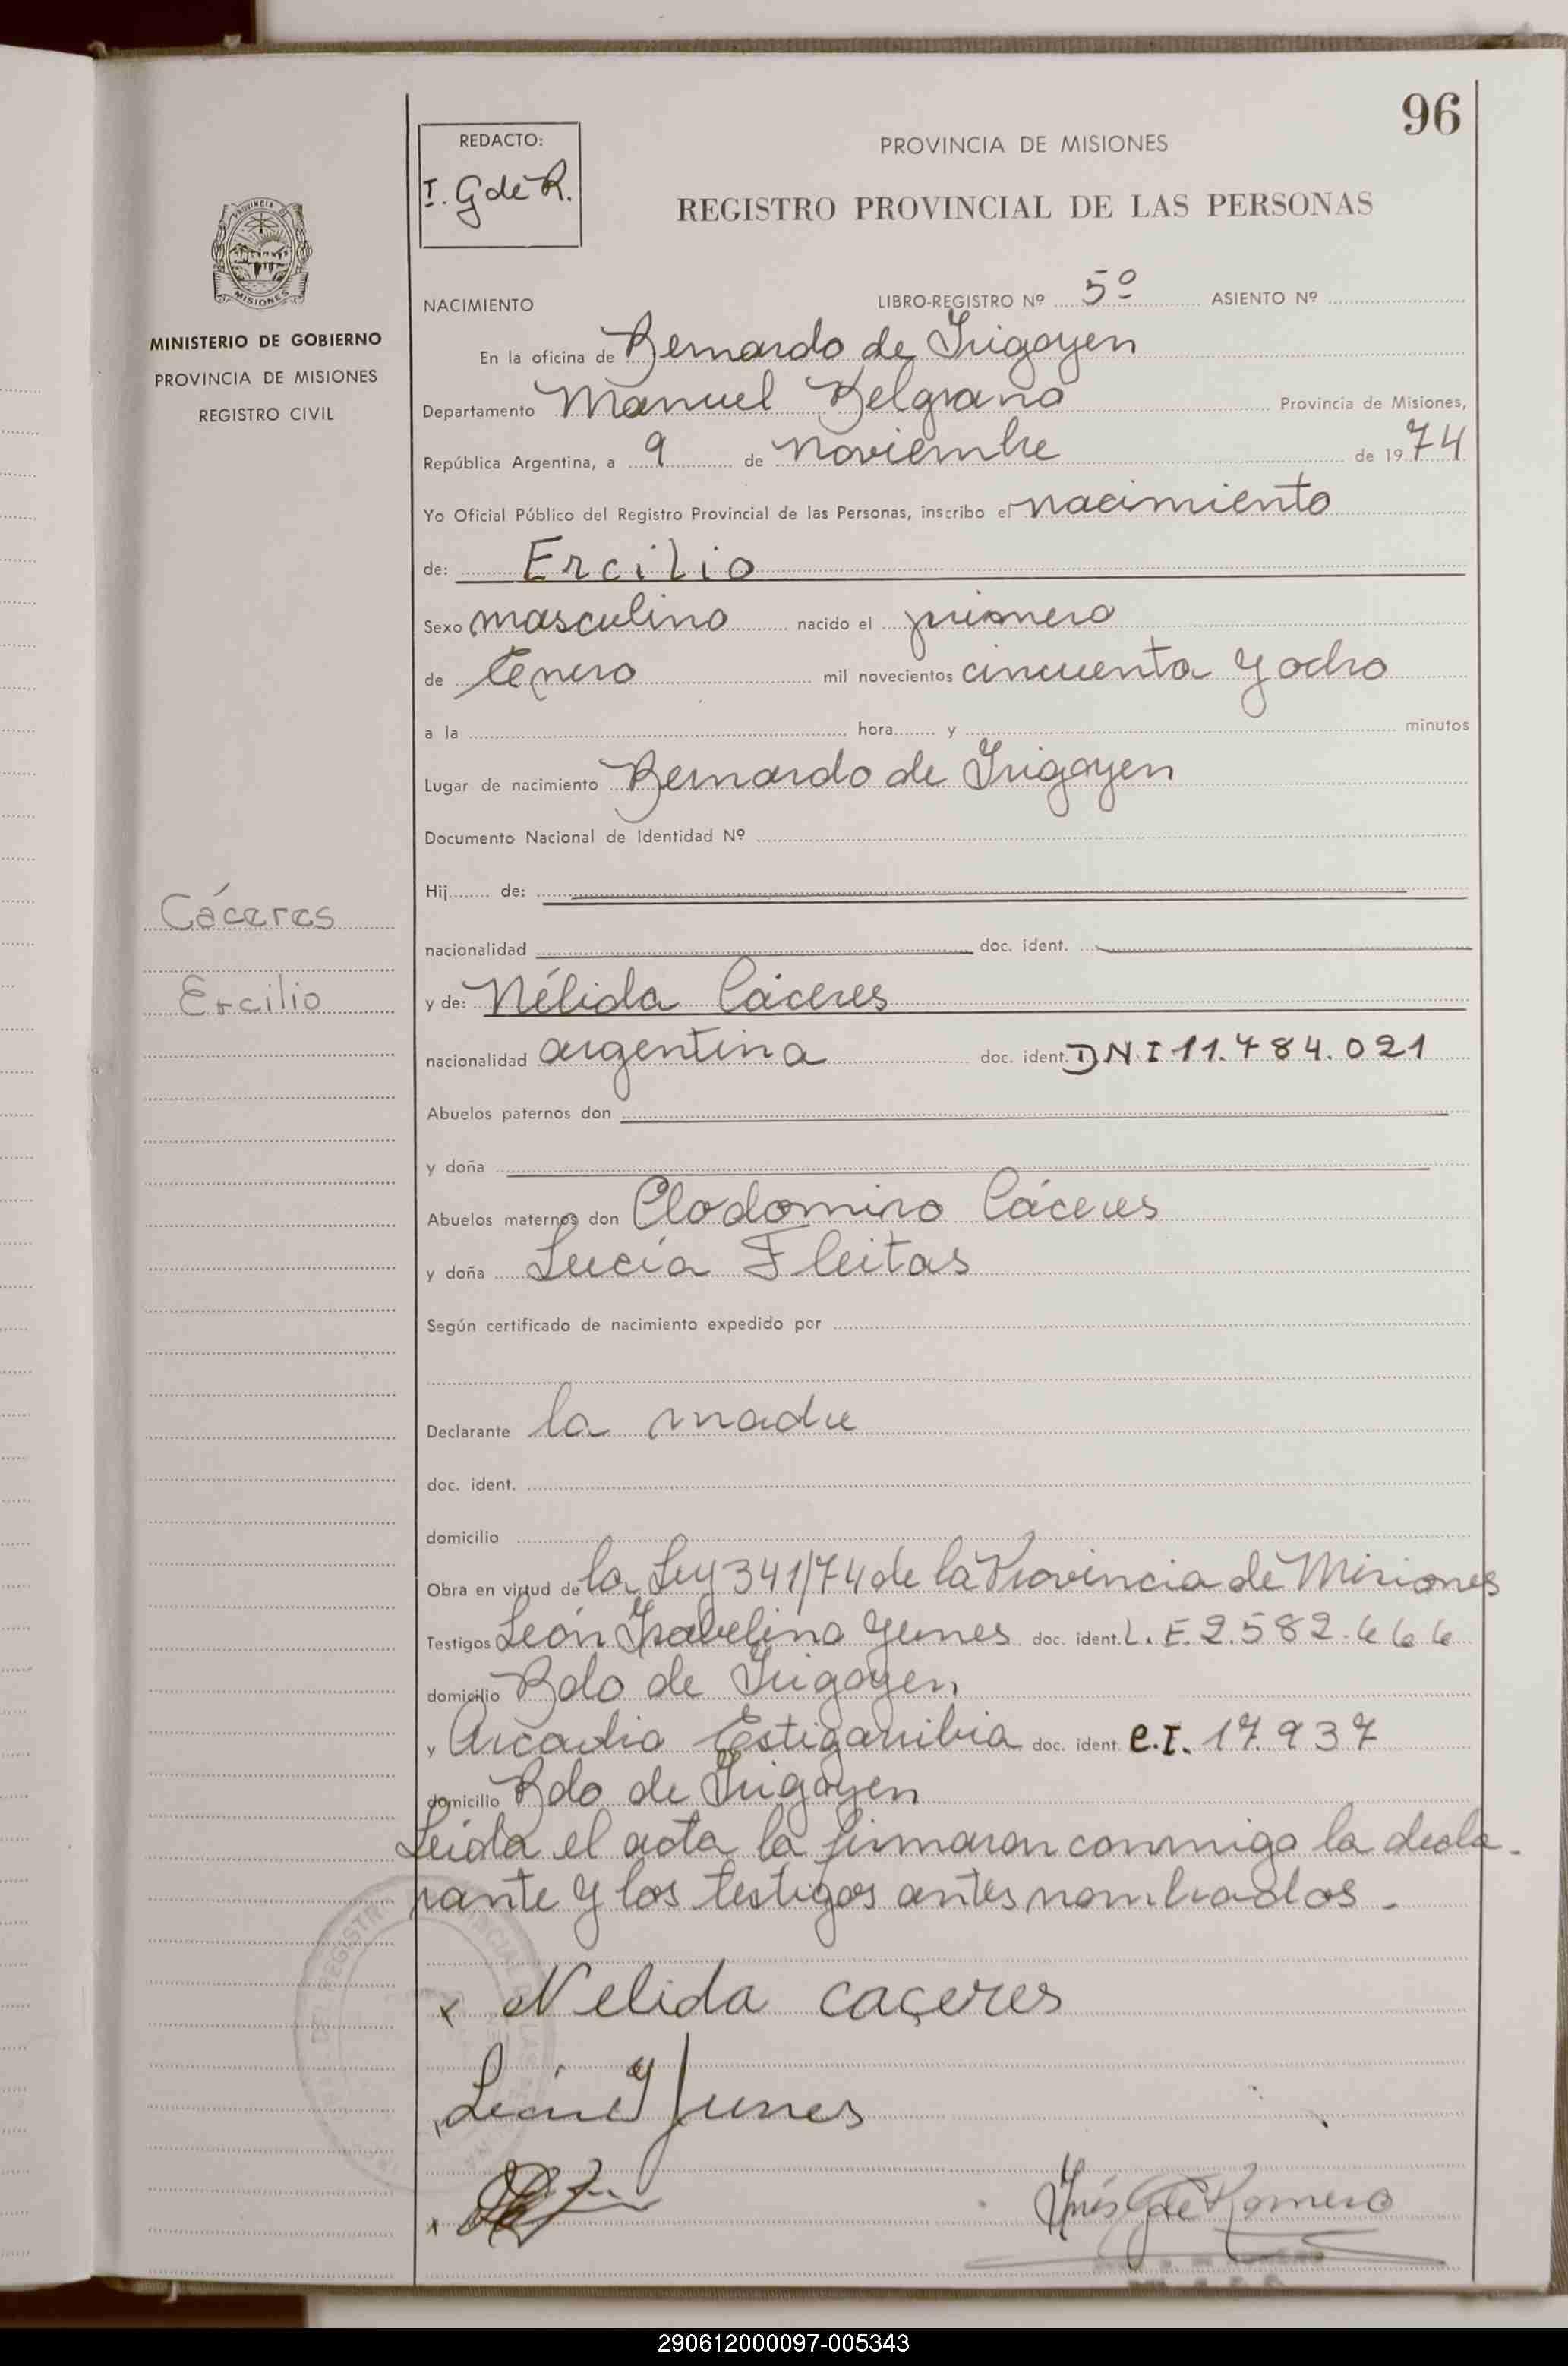 96
REDACTO:
I. G de R.
PROVINCIA DE MISIONES
REGISTRO PROVINCIAL DE LAS PERSONAS
MISIONES
MINISTERIO DE GOBIERNO
PROVINCIA DE MISIONES
REGISTRO CIVIL
NACIMIENTO LIBRO-REGISTRO Nº 5º ASIENTO Nº
En la oficina de Bernardo de Irigoyen
Departamento Manuel Belgrano Provincia de Misiones,
República Argentina, a 9 de noviembre de 1974
Yo Oficial Público del Registro Provincial de las Personas, inscribo el nacimiento
de: Ercilio
Sexo masculino nacido el primero
de Enero mil novecientos cincuenta y ocho
a la hora y minutos
Lugar de nacimiento Bernardo de Irigoyen
Documento Nacional de Identidad Nº
Hij de:
Cáceres
nacionalidad doc. ident.
Ercilio
y de: Nélida Cáceres
nacionalidad argentina doc. ident. DNI 11.784.021
Abuelos paternos don
y doña
Abuelos maternos don Clodomiro Cáceres
y doña Lucía Fleitas
Según certificado de nacimiento expedido por
Declarante la madre
doc. ident.
domicilio
Obra en virtud de la Ley 341/74 de la Provincia de Misiones
Testigos León Isabelino Yunes doc. ident. L.E. 2.582.666
domicilio Bdo de Irigoyen
y Arcadio Estigarribia doc. ident. C.I. 17.937
domicilio Bdo de Irigoyen
Leida el acta la firmaron conmigo la decla-
rante y los testigos antes nombrados.
x Nelida caçeres
León Y Yunes
x
Inés G de Romero
290612000097-005343